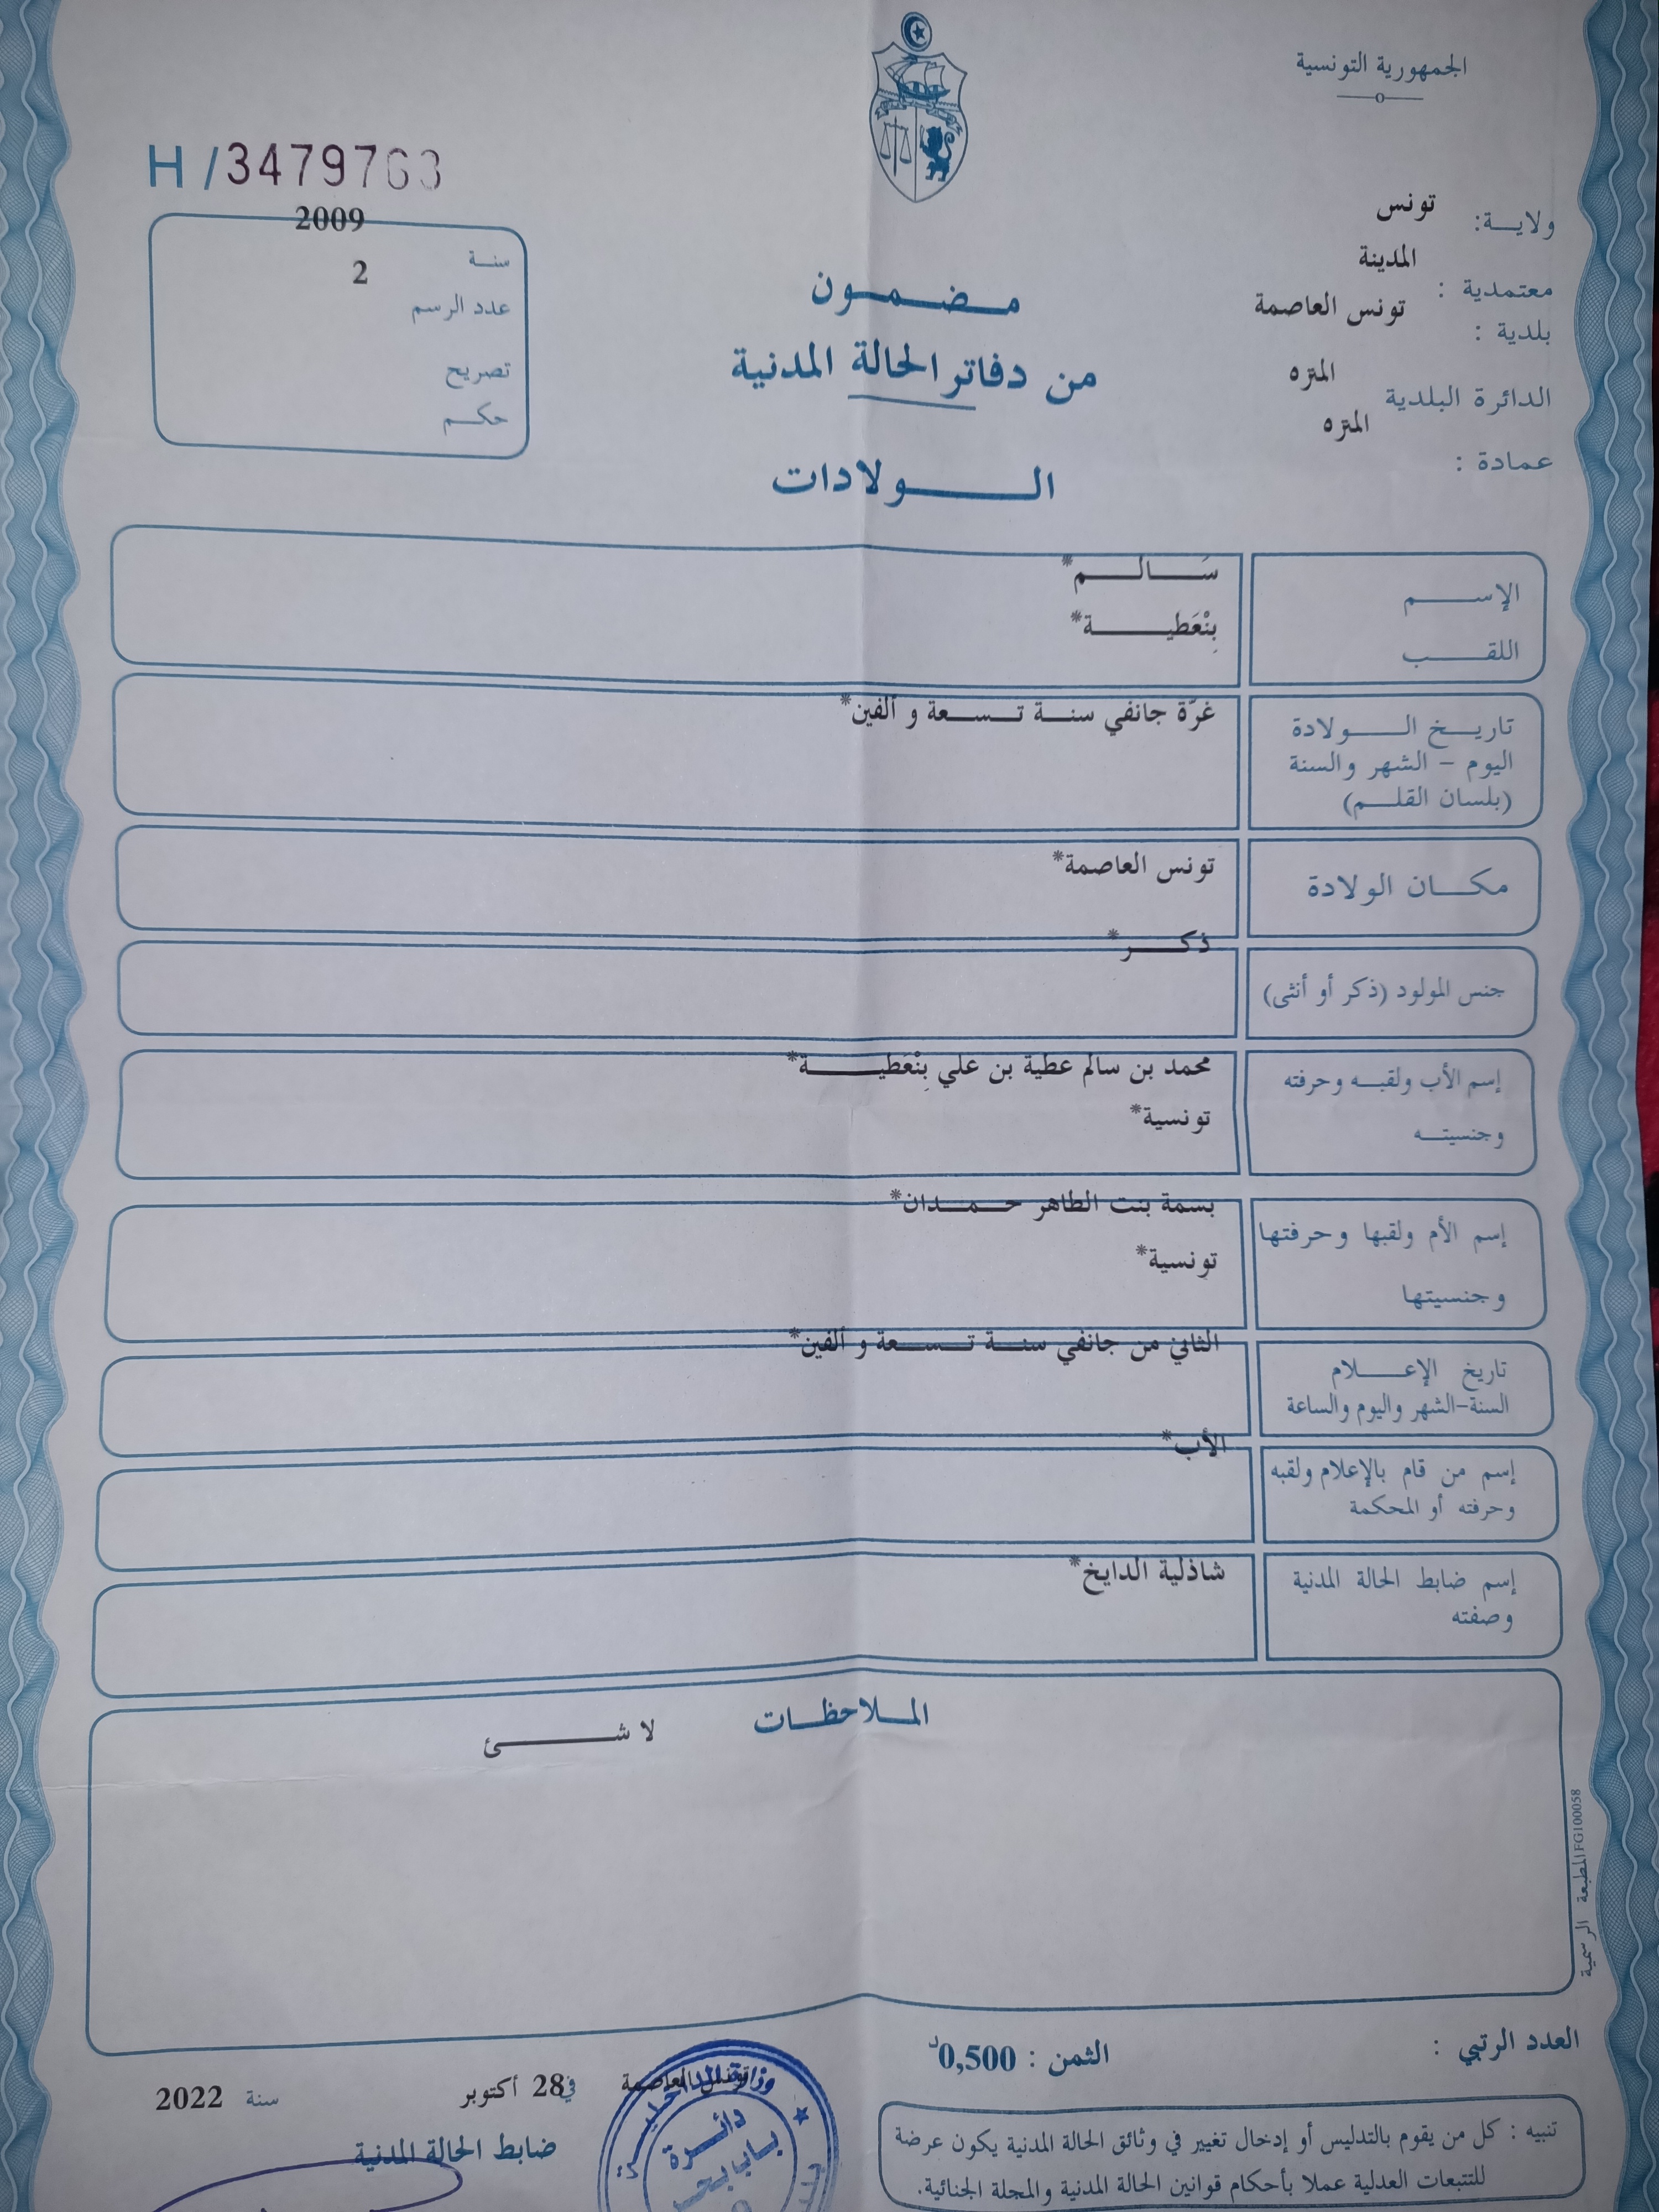 الجمهورية التونسية
H/3479763
2009
سنة
2
عدد الرسم
تصريح
حكم
ولاية: تونس
معتمدية : المدينة
بلدية : تونس العاصمة
الدائرة البلدية المنزه
عمادة : المنزه
مضمون
من دفاتر الحالة المدنية
الولادات
الإسم سَالم*
اللقب بِنْعَطية*
تاريخ الولادة غرّة جانفي سنة تسعة و ألفين*
اليوم – الشهر والسنة
(بلسان القلم)
مكان الولادة تونس العاصمة*
جنس المولود (ذكر أو أنثى) ذكر*
إسم الأب ولقبه وحرفته محمد بن سالم عطية بن علي بِنْعَطية*
وجنسيته تونسية*
إسم الأم ولقبها وحرفتها بسمة بنت الطاهر حمدان*
وجنسيتها تونسية*
تاريخ الإعلام الثاني من جانفي سنة تسعة و ألفين*
السنة-الشهر واليوم والساعة
إسم من قام بالإعلام ولقبه الأب*
وحرفته أو المحكمة
إسم ضابط الحالة المدنية شاذلية الدايخ*
وصفته
الملاحظات
لا شئ
المطبعة الرسمية FG100058
العدد الرتبي :
الثمن : 0,500د
تونس العاصمة في 28 أكتوبر سنة 2022
ضابط الحالة المدنية
وزارة الداخلية
دائرة
باب بحر
تنبيه : كل من يقوم بالتدليس أو إدخال تغيير في وثائق الحالة المدنية يكون عرضة
للتتبعات العدلية عملا بأحكام قوانين الحالة المدنية والمجلة الجنائية.